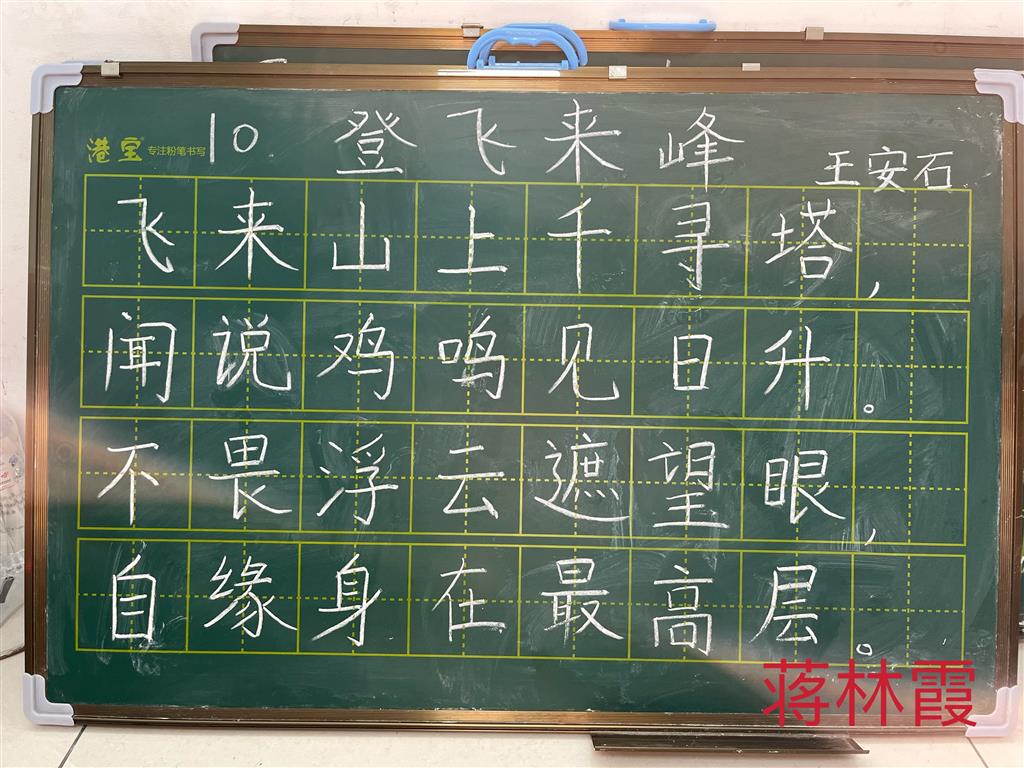 港宝® 专注粉笔书写
10 登飞来峰
王安石
飞来山上千寻塔，
闻说鸡鸣见日升。
不畏浮云遮望眼，
自缘身在最高层。
蒋林霞